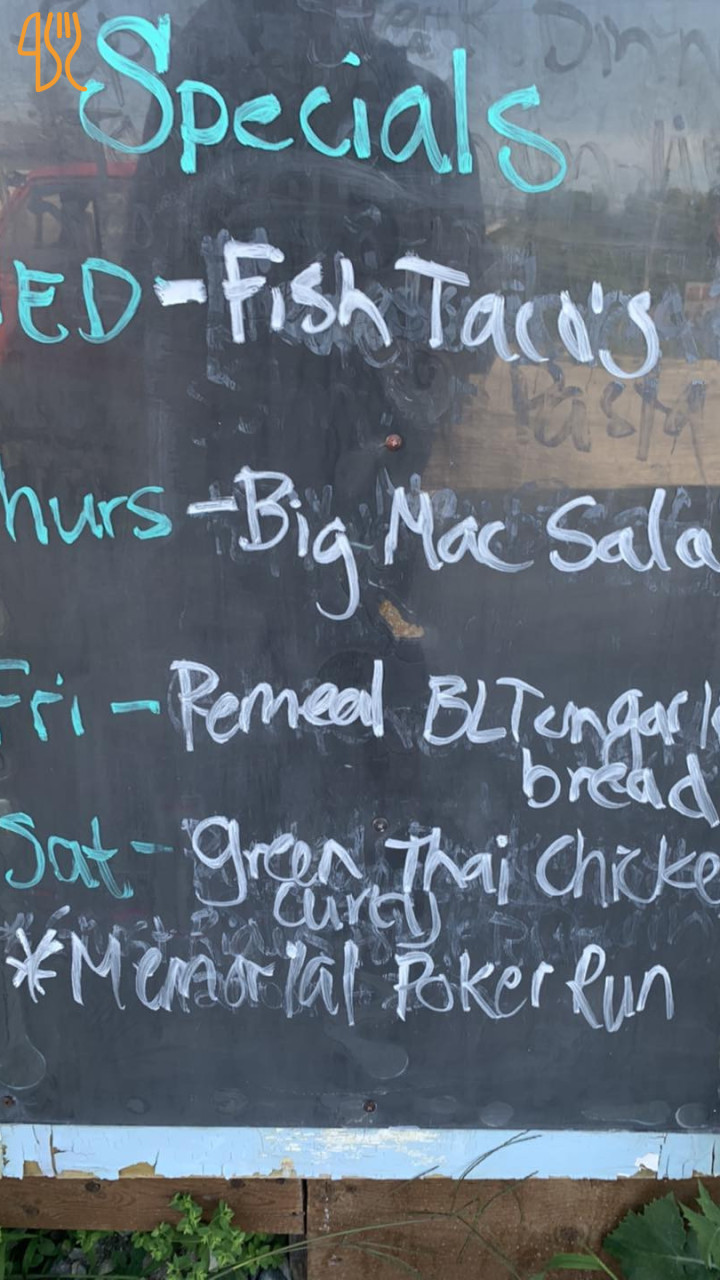 Specials
ED - Fish Taco's
hurs - Big Mac Sala
Fri - Pemeal BLT on garl
bread
Sat - green Thai Chicke
curry
*Memorial Poker Run